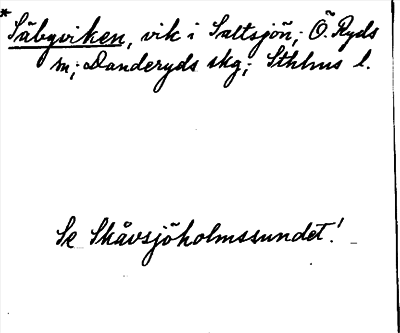 * Säbyviken, vik i Saltsjön; Ö. Ryds
sn; Danderyds skg; Sthlms l.
Se Skåvsjöholmssundet!